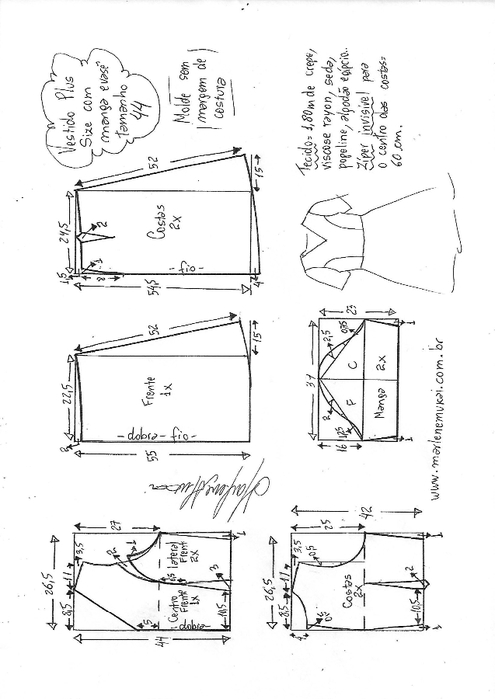 Vestido Plus
Size com
manga evasê
tamanho
44
Molde sem
margem de
costura
Tecido = 1,80m de crepe,
viscose rayon, seda,
popeline, algodão egípcio.
Zíper invisível para
o centro das costas =
60 cm.
24,5
1,5
52
15
54,5
4
2
1
Costas
2x
fio
22,5
3
52
15
55
Frente
1x
fio
dobra
37
23
16
2
2,5
1,25
0,75
F
C
Manga
2x
1
1
www.marlenemukai.com.br
26,5
8,5
11
3,5
27
44
5
2
1
0,5
3
10,5
Centro
Frente
1x
lateral
Frent
2x
dobra
1
26,5
8,5
11
3,5
0,5
25
42
Costas
2x
10,5
2
1
1